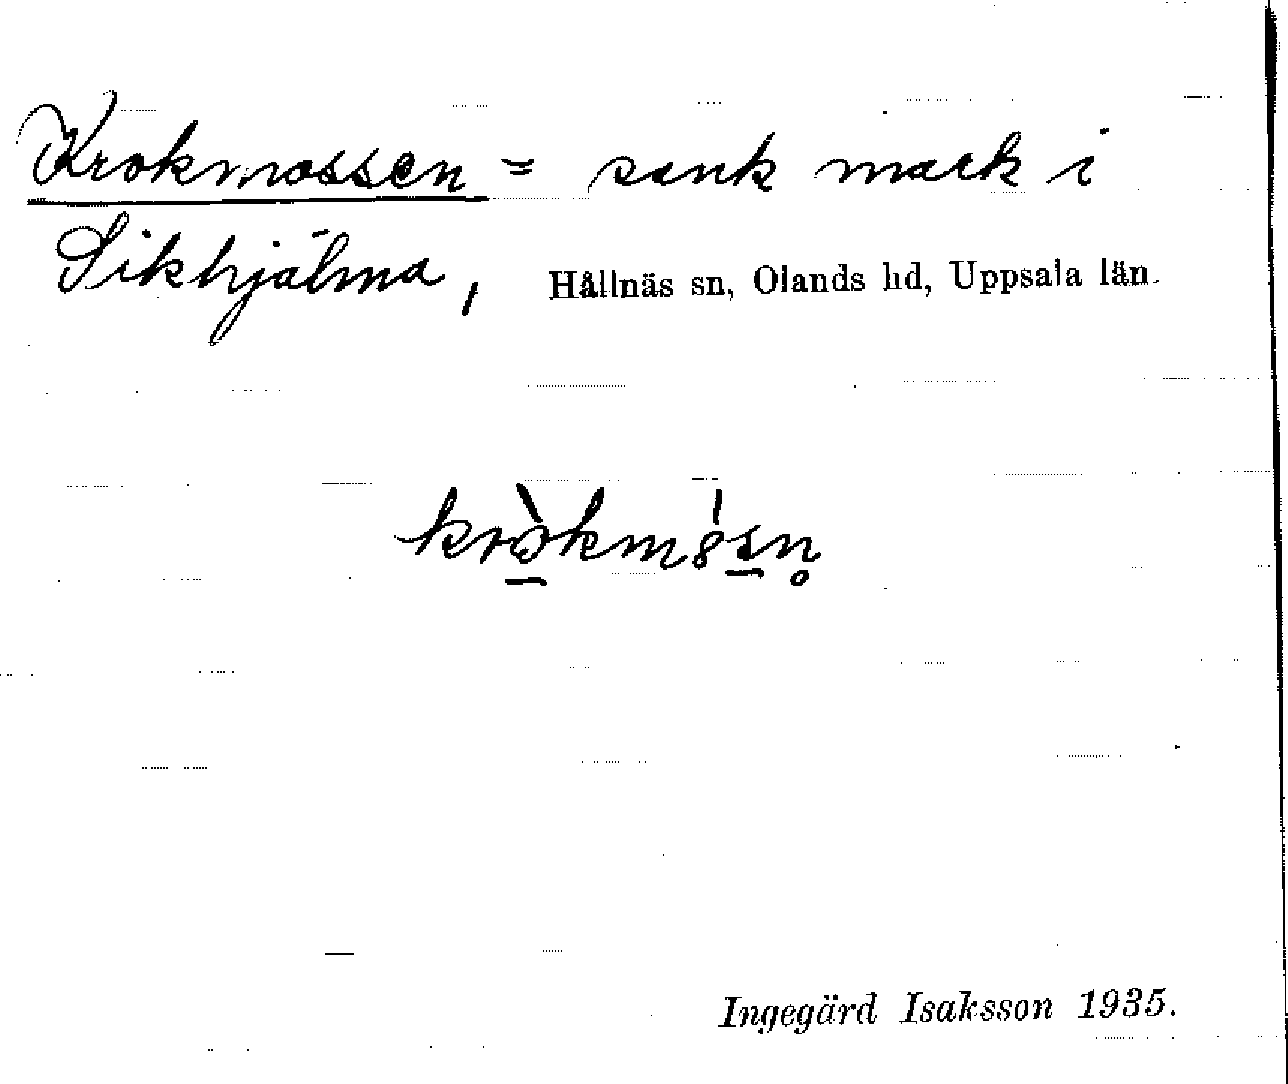 Krokmossen = sank mark i
Sikhjälma, Hållnäs sn, Olands hd, Uppsala län.
Ingegärd Isaksson 1935.